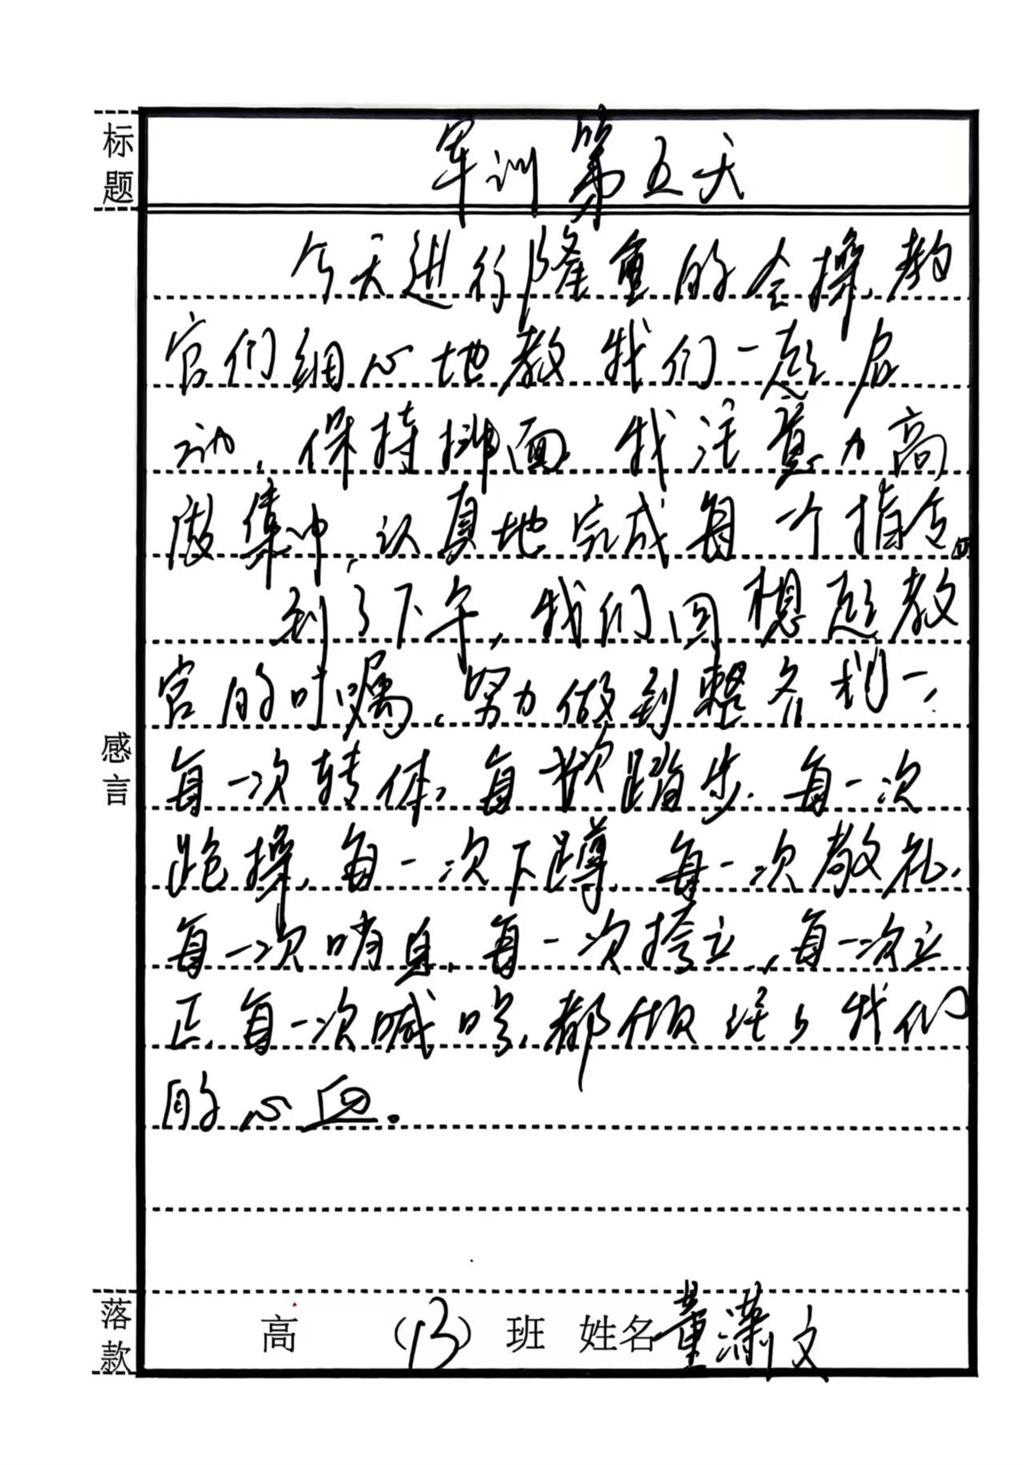 标题
军训第五天
今天进行隆重的会操,教
官们细心地教我们一起启
动,保持排面,我注意力高
度集中,认真地完成每一个指令。
到了下午,我们回想起教
官的叮嘱,努力做到整齐划一,
每一次转体,每一次踏步,每一次
跑操,每一次下蹲,每一次敬礼,
每一次哨息,每一次挎立,每一次立
正,每一次喊号,都倾注了我们
的心血。
感言
落款
高 (13) 班 姓名董潇文